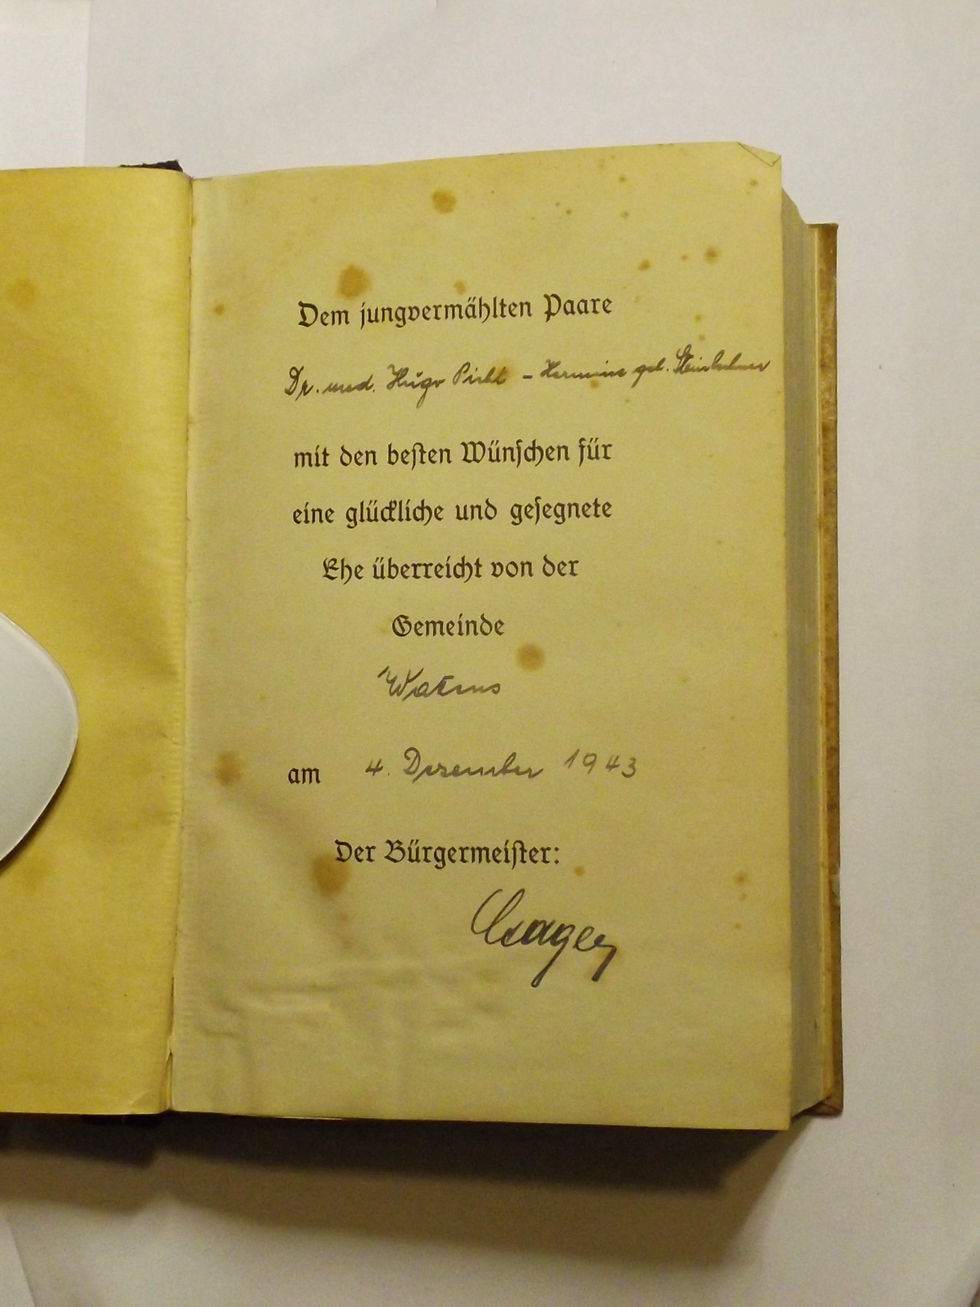 Dem jungvermählten Paare
Dr. med. Hugo Pichl - Hermine geb.
mit den besten Wünschen für
eine glückliche und gesegnete
Ehe überreicht von der
Gemeinde
Wattens
am 4. Dezember 1943
Der Bürgermeister: